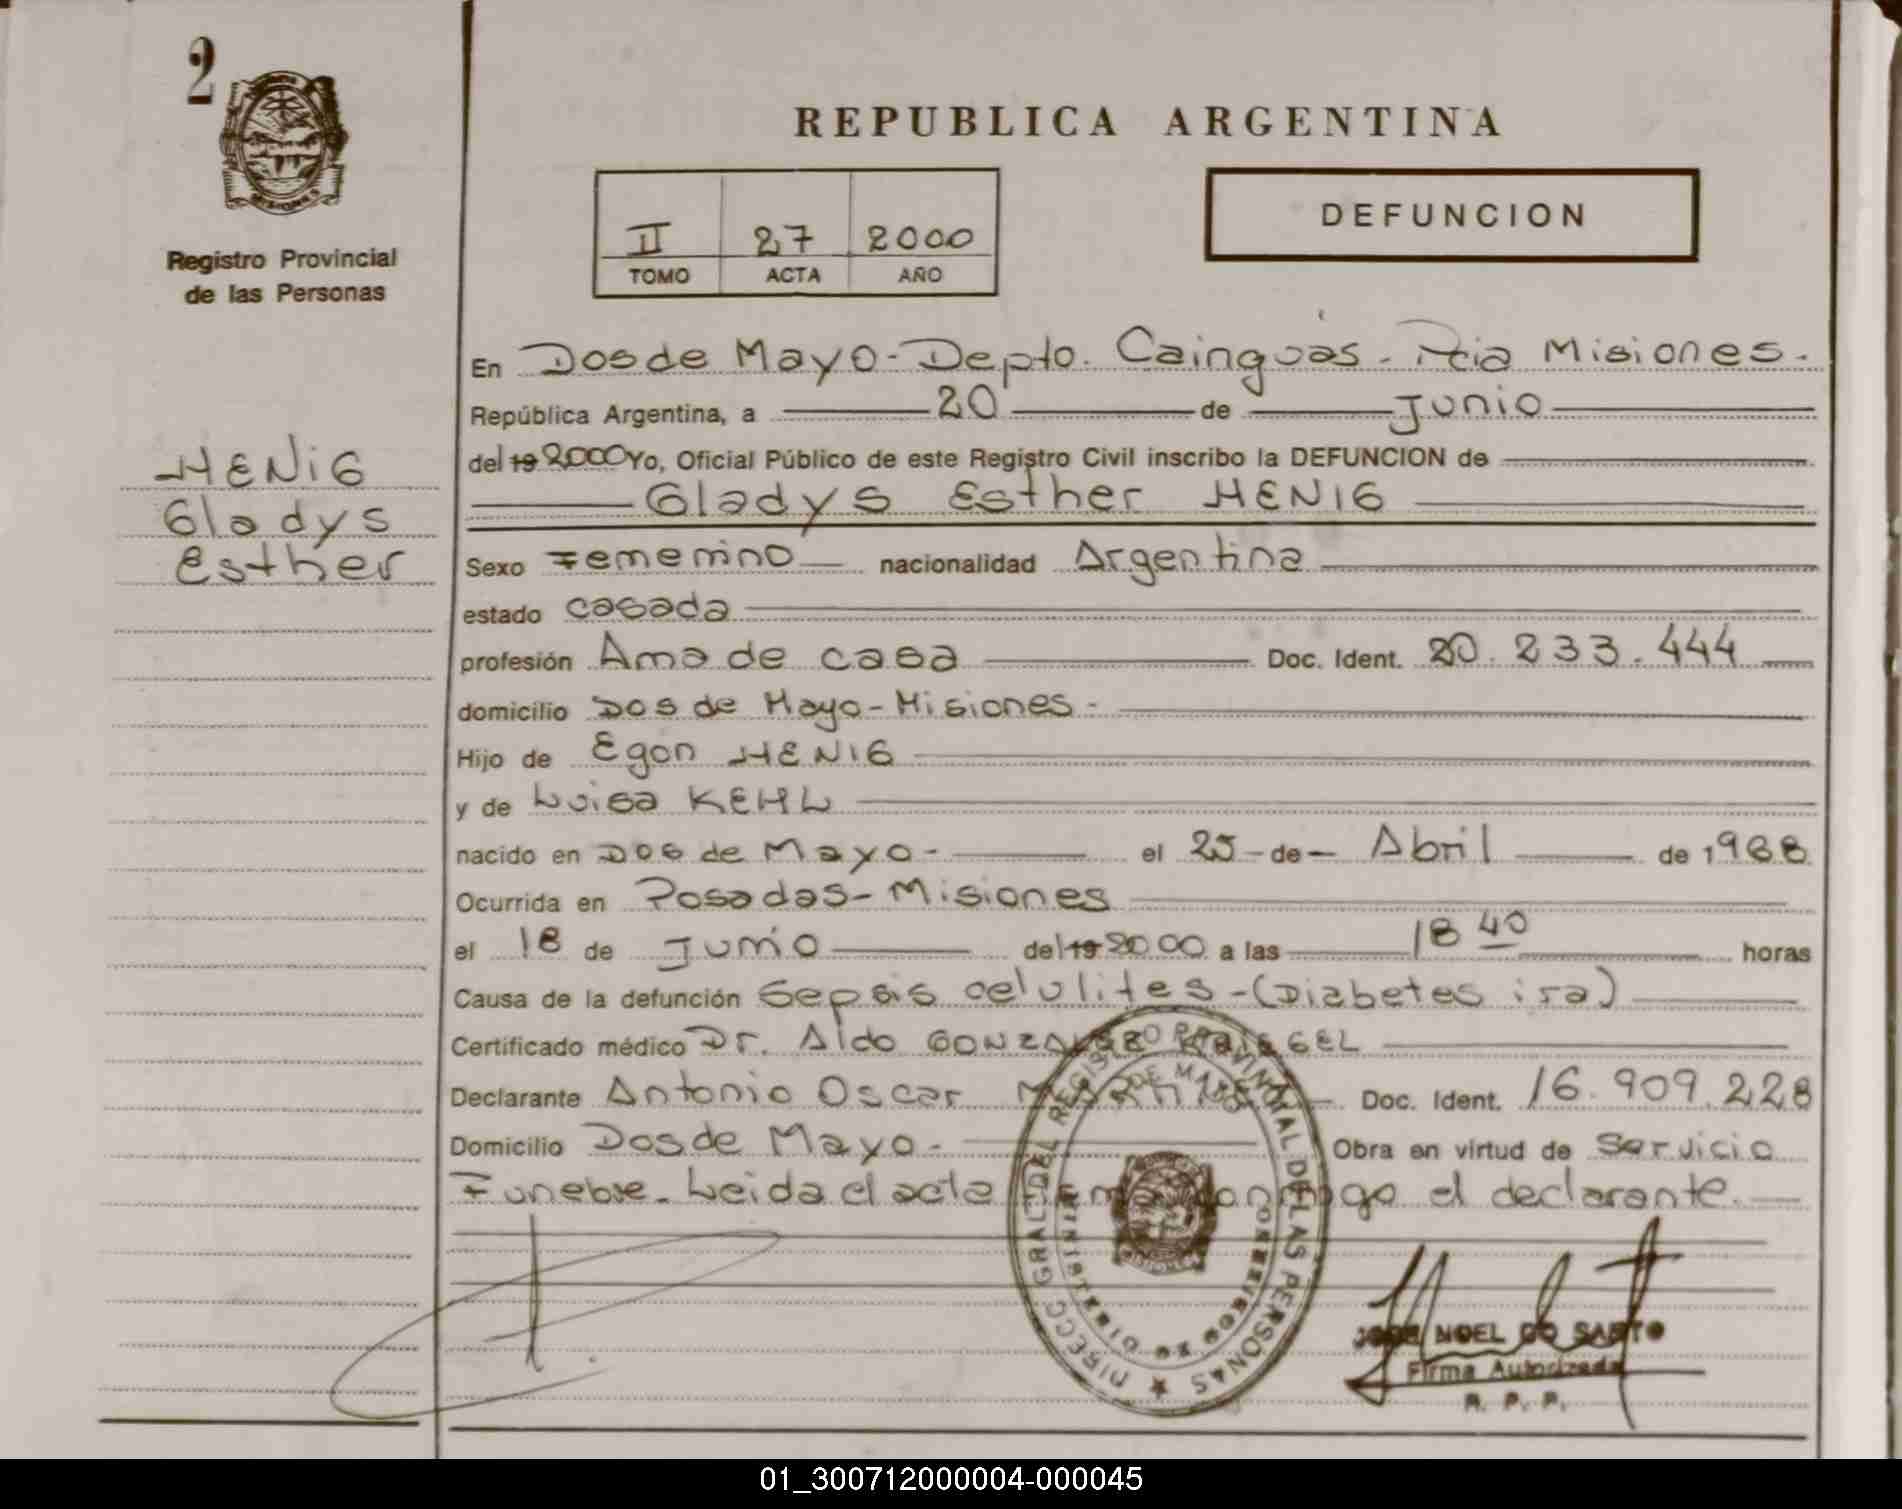 2
REPUBLICA ARGENTINA
Registro Provincial
de las Personas
II 27 2000
TOMO ACTA AÑO
DEFUNCION
HENIG
Gladys
Esther
En Dos de Mayo - Depto. Cainguás - Pcia Misiones.
República Argentina, a 20 de Junio
del 19 2000 Yo, Oficial Público de este Registro Civil inscribo la DEFUNCION de
Gladys Esther HENIG
Sexo Femenino nacionalidad Argentina
estado casada
profesión Ama de casa Doc. Ident. 20.233.444
domicilio Dos de Mayo - Misiones -
Hijo de Egon HENIG
y de Luisa KEHL
nacido en Dos de Mayo - el 25 - de - Abril de 1968
Ocurrida en Posadas - Misiones
el 18 de Junio del 19 2000 a las 18 40 horas
Causa de la defunción Sepsis celulites - (Diabetes ira)
Certificado médico Dr. Aldo GONZALEZ
Declarante Antonio Oscar Doc. Ident. 16.909.228
Domicilio Dos de Mayo - Obra en virtud de Servicio
Funebre. Leida el acta firma conmigo el declarante.
DIRECC GRAL DEL REGISTRO PROVINCIAL DE LAS PERSONAS
DE MAYO
MISIONES
JOSE NOEL DO SANTO
Firma Autorizada
R. P. P.
01_300712000004-000045